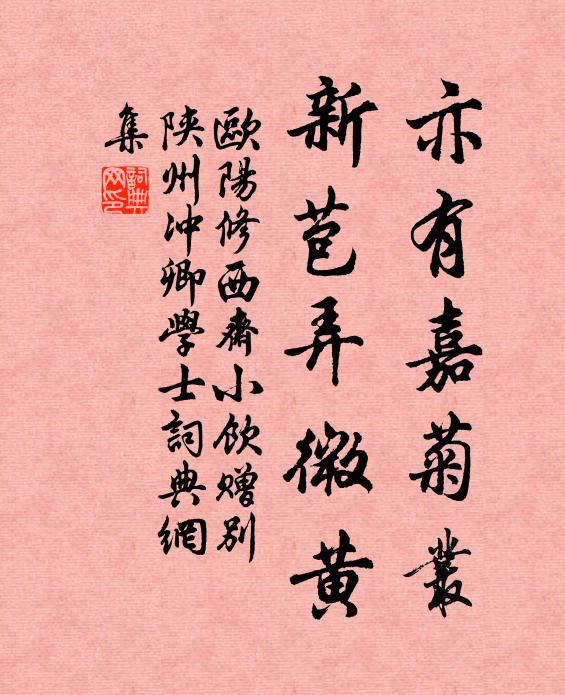 亦有嘉菊叢
新苞弄微黄
歐陽修西齋小飲赠别
陝州冲卿學士詞典網
集
詞典
网印